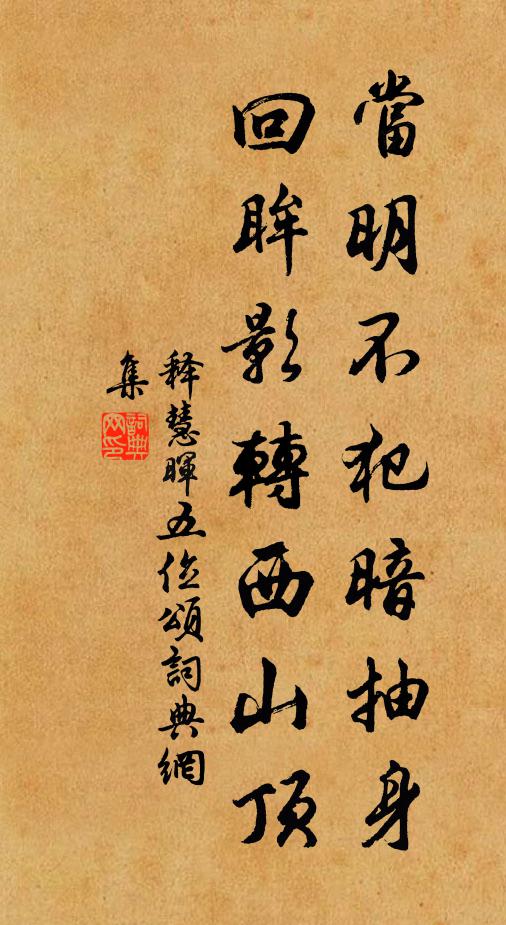 當明不犯暗抽身
回眸影轉西山頂
释慧暉五位頌詞典網
集
詞典
网印